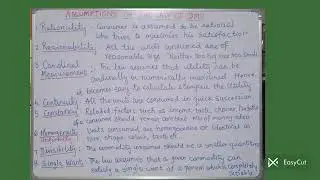 ASSUMPTIONS OF THE LAW OF DMU
1. Rationality - Consumer is assumed to be rational
who tries to maximise his satisfaction
2. Reasonability - All the units consumed are of
reasonable size. Neither too big nor too small
3. Cardinal Measurement - The law assumes that utility can be
cardinally or numerically measured. Hence
it becomes easy to calculate & compare the utility
4. Continuity - All the units are consumed in quick succession
5. Constancy - Related factors such as income, taste,
consumer should remain constant. MU of money also
6. Homogeneity - Units consumed are homogeneous or identical in
size, shape, colour, taste etc.
7. Divisibility - The commodity should be in smaller quantities
8. Single Want - The law assumes that a given commodity can
satisfy a single want of a person
EasyCut